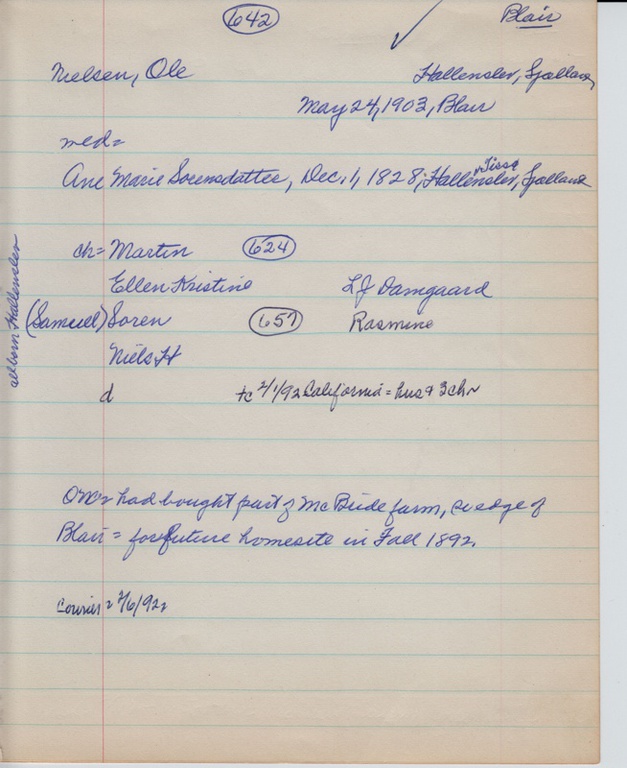 642
Blair
Nielsen, Ole Hallenslev, Sjælland
May 24, 1903, Blair
med=
Ane Marie Sorensdatter, Dec. 1, 1828, Hallenslev, Tissø, Sjælland
ch= Martin 624
Ellen Kristine L J Damgaard
(Samuel) Soren 657 Rasmine
Niels H
d to 2/1/92 California = hus & 3 chn
all born Hallenslev
had bought part of McBride farm, sw edge of
Blair = for future homesite in Fall 1892.
Courier = /6/92